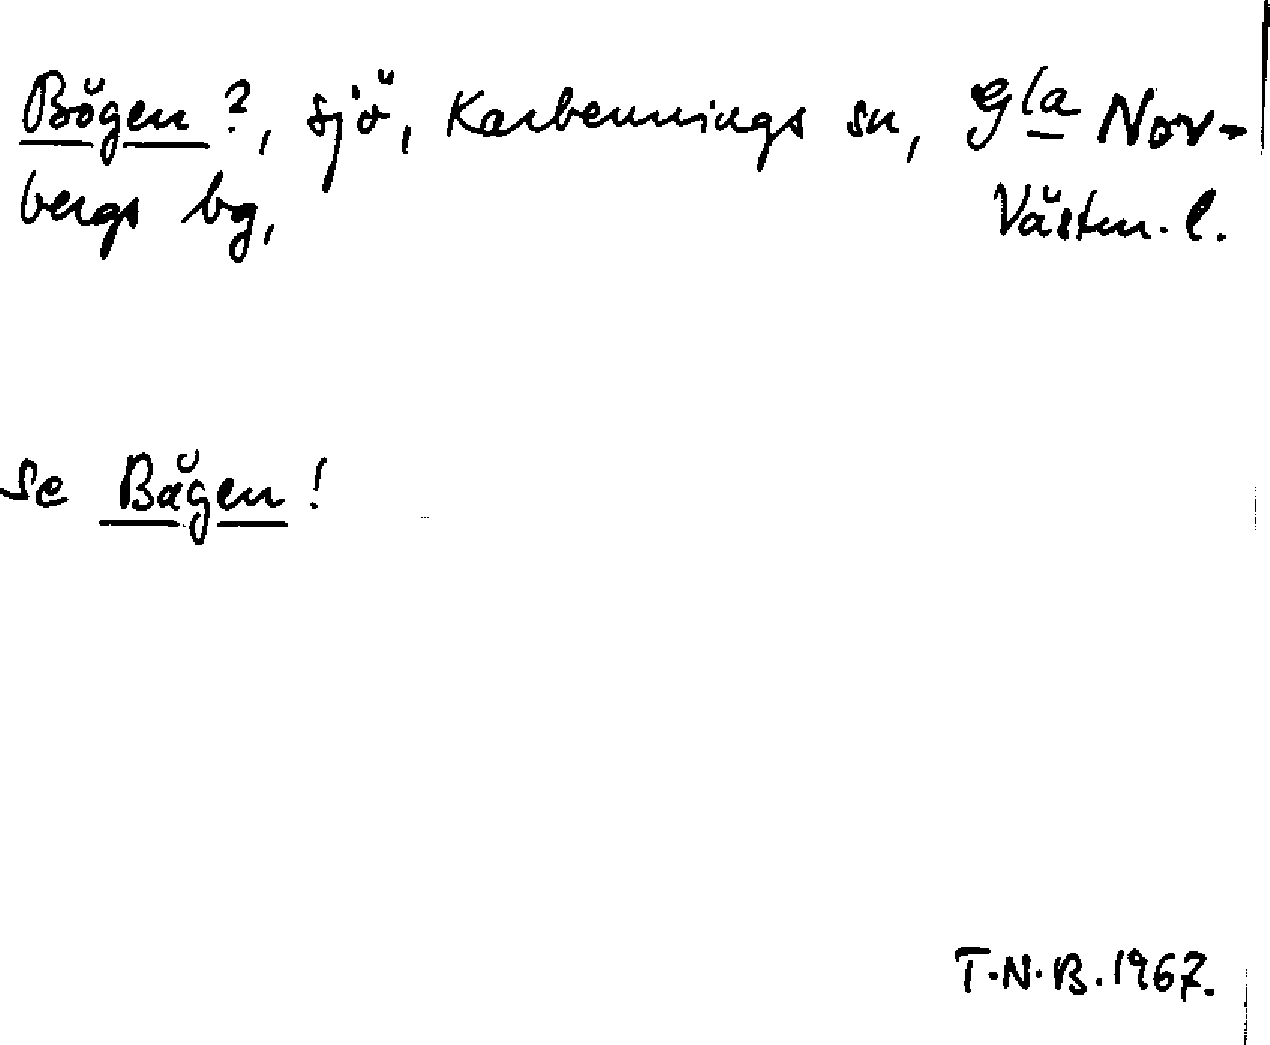 Bögen ?, sjö, Karbennings sn, Gla Nor-
bergs bg, Västm. l.
Se Bågen!
T.N.B. 1967.